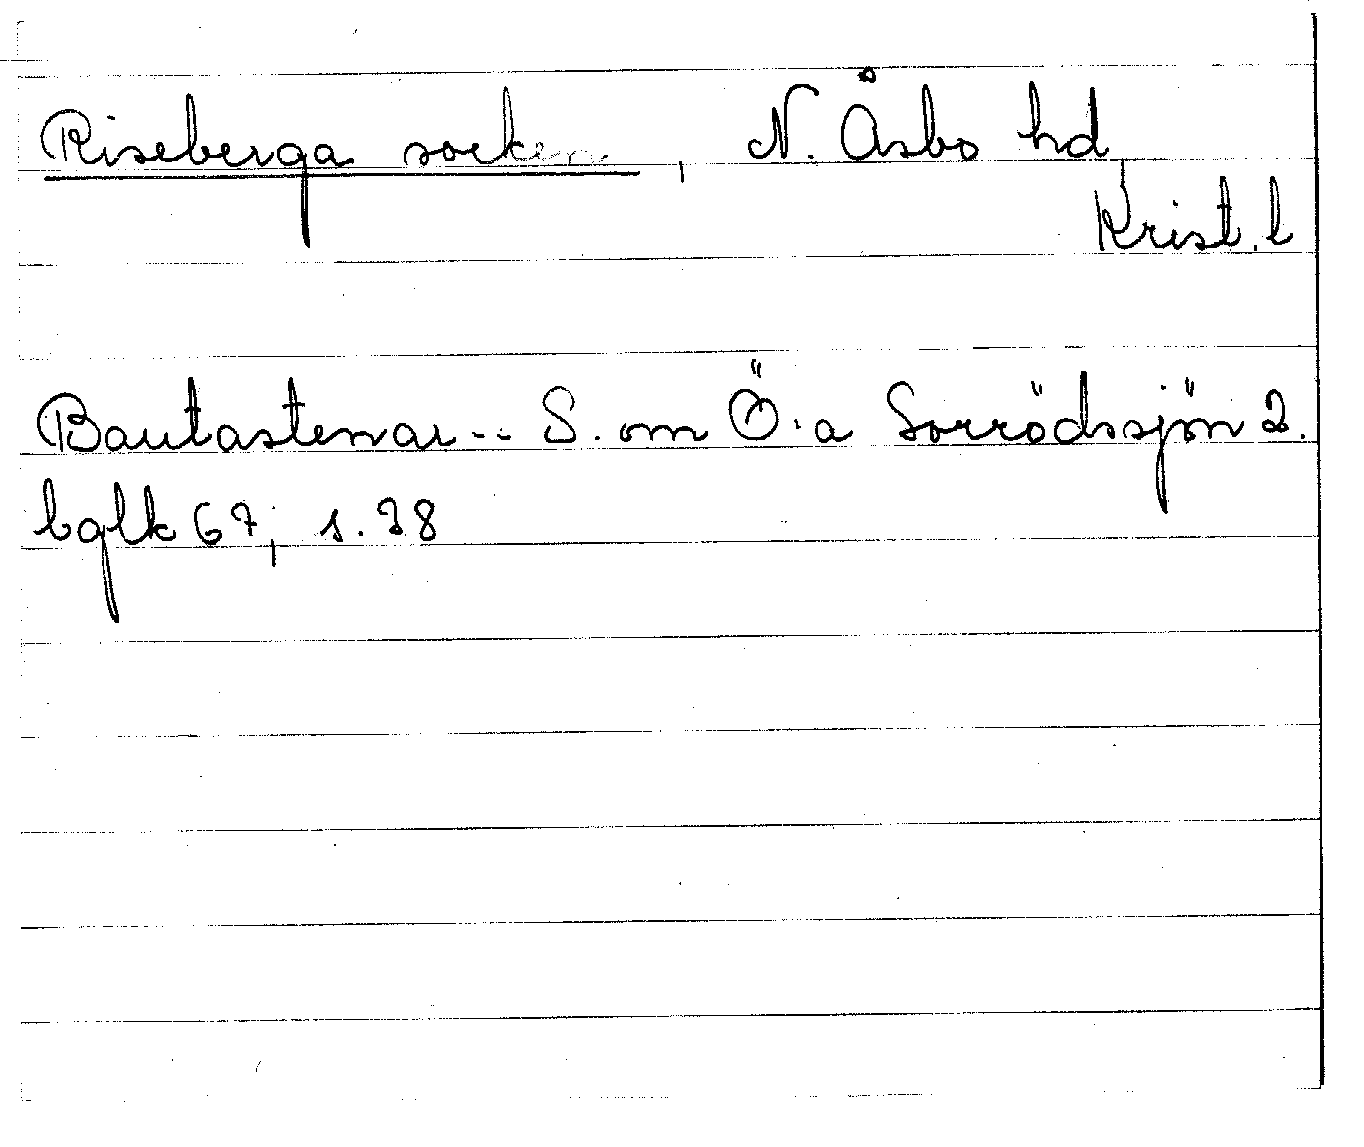 Riseberga socken, N. Åsbo hd,
Krist. l
Bautastenar -- S. om Ö:a Sorrödssjön 2.
bglk 67, s. 38